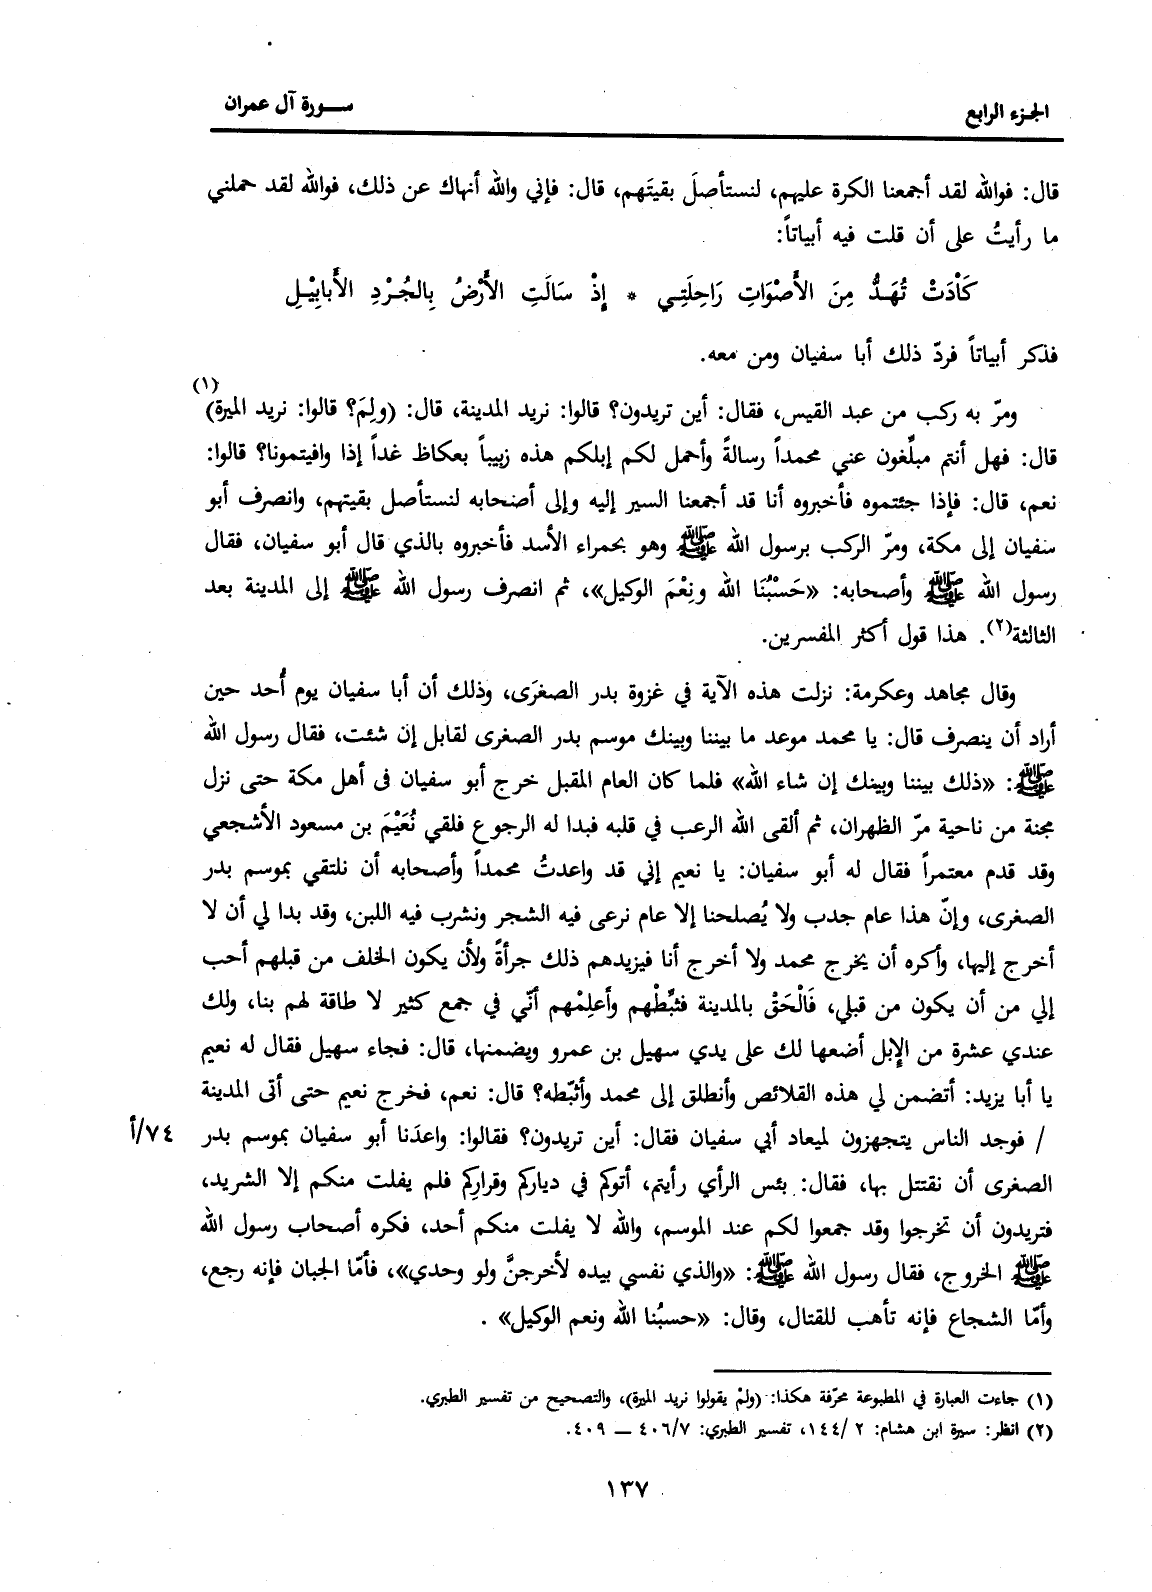 الجزء الرابع
ســورة آل عمران
قال: فوالله لقد أجمعنا الكرة عليهم، لنستأصلَ بقيتَهم، قال: فإني والله أنهاك عن ذلك، فوالله لقد حملني
ما رأيتُ على أن قلت فيه أبياتاً:
كَاْدَتْ تُهَـدُّ مِنَ الأَصْوَاتِ رَاحِلَتِـي * إِذْ سَالَتِ الأَرْضُ بِالجُـرْدِ الأَبابِيْـلِ
فذكر أبياتاً فردّ ذلك أبا سفيان ومن معه.
ومرّ به ركب من عبد القيس، فقال: أين تريدون؟ قالوا: نريد المدينة، قال: (ولِمَ؟ قالوا: نريد الميرة)(١)
قال: فهل أنتم مبلّغون عني محمداً رسالةً وأحمل لكم إبلكم هذه زبيباً بعكاظ غداً إذا وافيتمونا؟ قالوا:
نعم، قال: فإذا جئتموه فأخبروه أنا قد أجمعنا السير إليه وإلى أصحابه لنستأصل بقيتهم، وانصرف أبو
سفيان إلى مكة، ومرّ الركب برسول الله ﷺ وهو بحمراء الأسد فأخبروه بالذي قال أبو سفيان، فقال
رسول الله ﷺ وأصحابه: «حَسْبُنَا الله ونِعْمَ الوكيل»، ثم انصرف رسول الله ﷺ إلى المدينة بعد
الثالثة(٢). هذا قول أكثر المفسرين.
وقال مجاهد وعكرمة: نزلت هذه الآية في غزوة بدر الصغرَى، وذلك أن أبا سفيان يوم أُحد حين
أراد أن ينصرف قال: يا محمد موعد ما بيننا وبينك موسم بدر الصغرى لقابل إن شئت، فقال رسول الله
ﷺ: «ذلك بيننا وبينك إن شاء الله» فلما كان العام المقبل خرج أبو سفيان فى أهل مكة حتى نزل
مجنة من ناحية مرّ الظهران، ثم ألقى الله الرعب في قلبه فبدا له الرجوع فلقي نُعَيْمَ بن مسعود الأشجعي
وقد قدم معتمراً فقال له أبو سفيان: يا نعيم إني قد واعدتُ محمداً وأصحابه أن نلتقي بموسم بدر
الصغرى، وإنّ هذا عام جدب ولا يُصلحنا إلا عام نرعى فيه الشجر ونشرب فيه اللبن، وقد بدا لي أن لا
أخرج إليها، وأكره أن يخرج محمد ولا أخرج أنا فيزيدهم ذلك جرأةً ولأن يكون الخلف من قبلهم أحب
إلي من أن يكون من قبلي، فَالْحَقْ بالمدينة فثبِّطْهم وأعلِمْهم أنّي في جمع كثير لا طاقة لهم بنا، ولك
عندي عشرة من الإبل أضعها لك على يدي سهيل بن عمرو ويضمنها، قال: فجاء سهيل فقال له نعيم
يا أبا يزيد: أتضمن لي هذه القلائص وأنطلق إلى محمد وأثبّطه؟ قال: نعم، فخرج نعيم حتى أتى المدينة
/ فوجد الناس يتجهزون لميعاد أبي سفيان فقال: أين تريدون؟ فقالوا: واعدَنا أبو سفيان بموسم بدر ٧٤/أ
الصغرى أن نقتتل بها، فقال: بئس الرأي رأيتم، أتوكم في دياركم وقراركم فلم يفلت منكم إلا الشريد،
فتريدون أن تخرجوا وقد جمعوا لكم عند الموسم، والله لا يفلت منكم أحد، فكره أصحاب رسول الله
ﷺ الخروج، فقال رسول الله ﷺ: «والذي نفسي بيده لأخرجنَّ ولو وحدي»، فأمّا الجبان فإنه رجع،
وأمّا الشجاع فإنه تأهب للقتال، وقال: «حسبُنا الله ونعم الوكيل».
(١) جاءت العبارة في المطبوعة محرّفة هكذا: (ولمْ يقولوا نريد الميرة)، والتصحيح من تفسير الطبري.
(٢) انظر: سيرة ابن هشام: ٢ /١٤٤، تفسير الطبري: ٤٠٦/٧ — ٤٠٩.
١٣٧